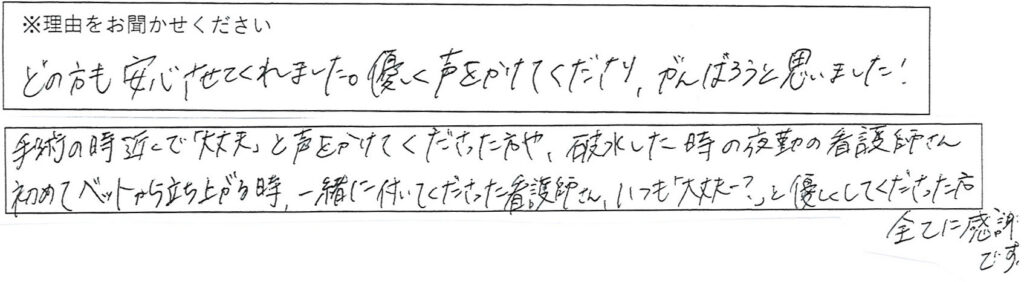 ※理由をお聞かせください
どの方も安心させてくれました。優しく声をかけてくださり、がんばろうと思いました!
手術の時近くで「大丈夫」と声をかけてくださった方や、破水した時の夜勤の看護師さん
初めてベットから立ち上がる時、一緒に付いてくださった看護師さん、いつも「大丈夫ー?」と優しくしてくださった方
全てに感謝
です。